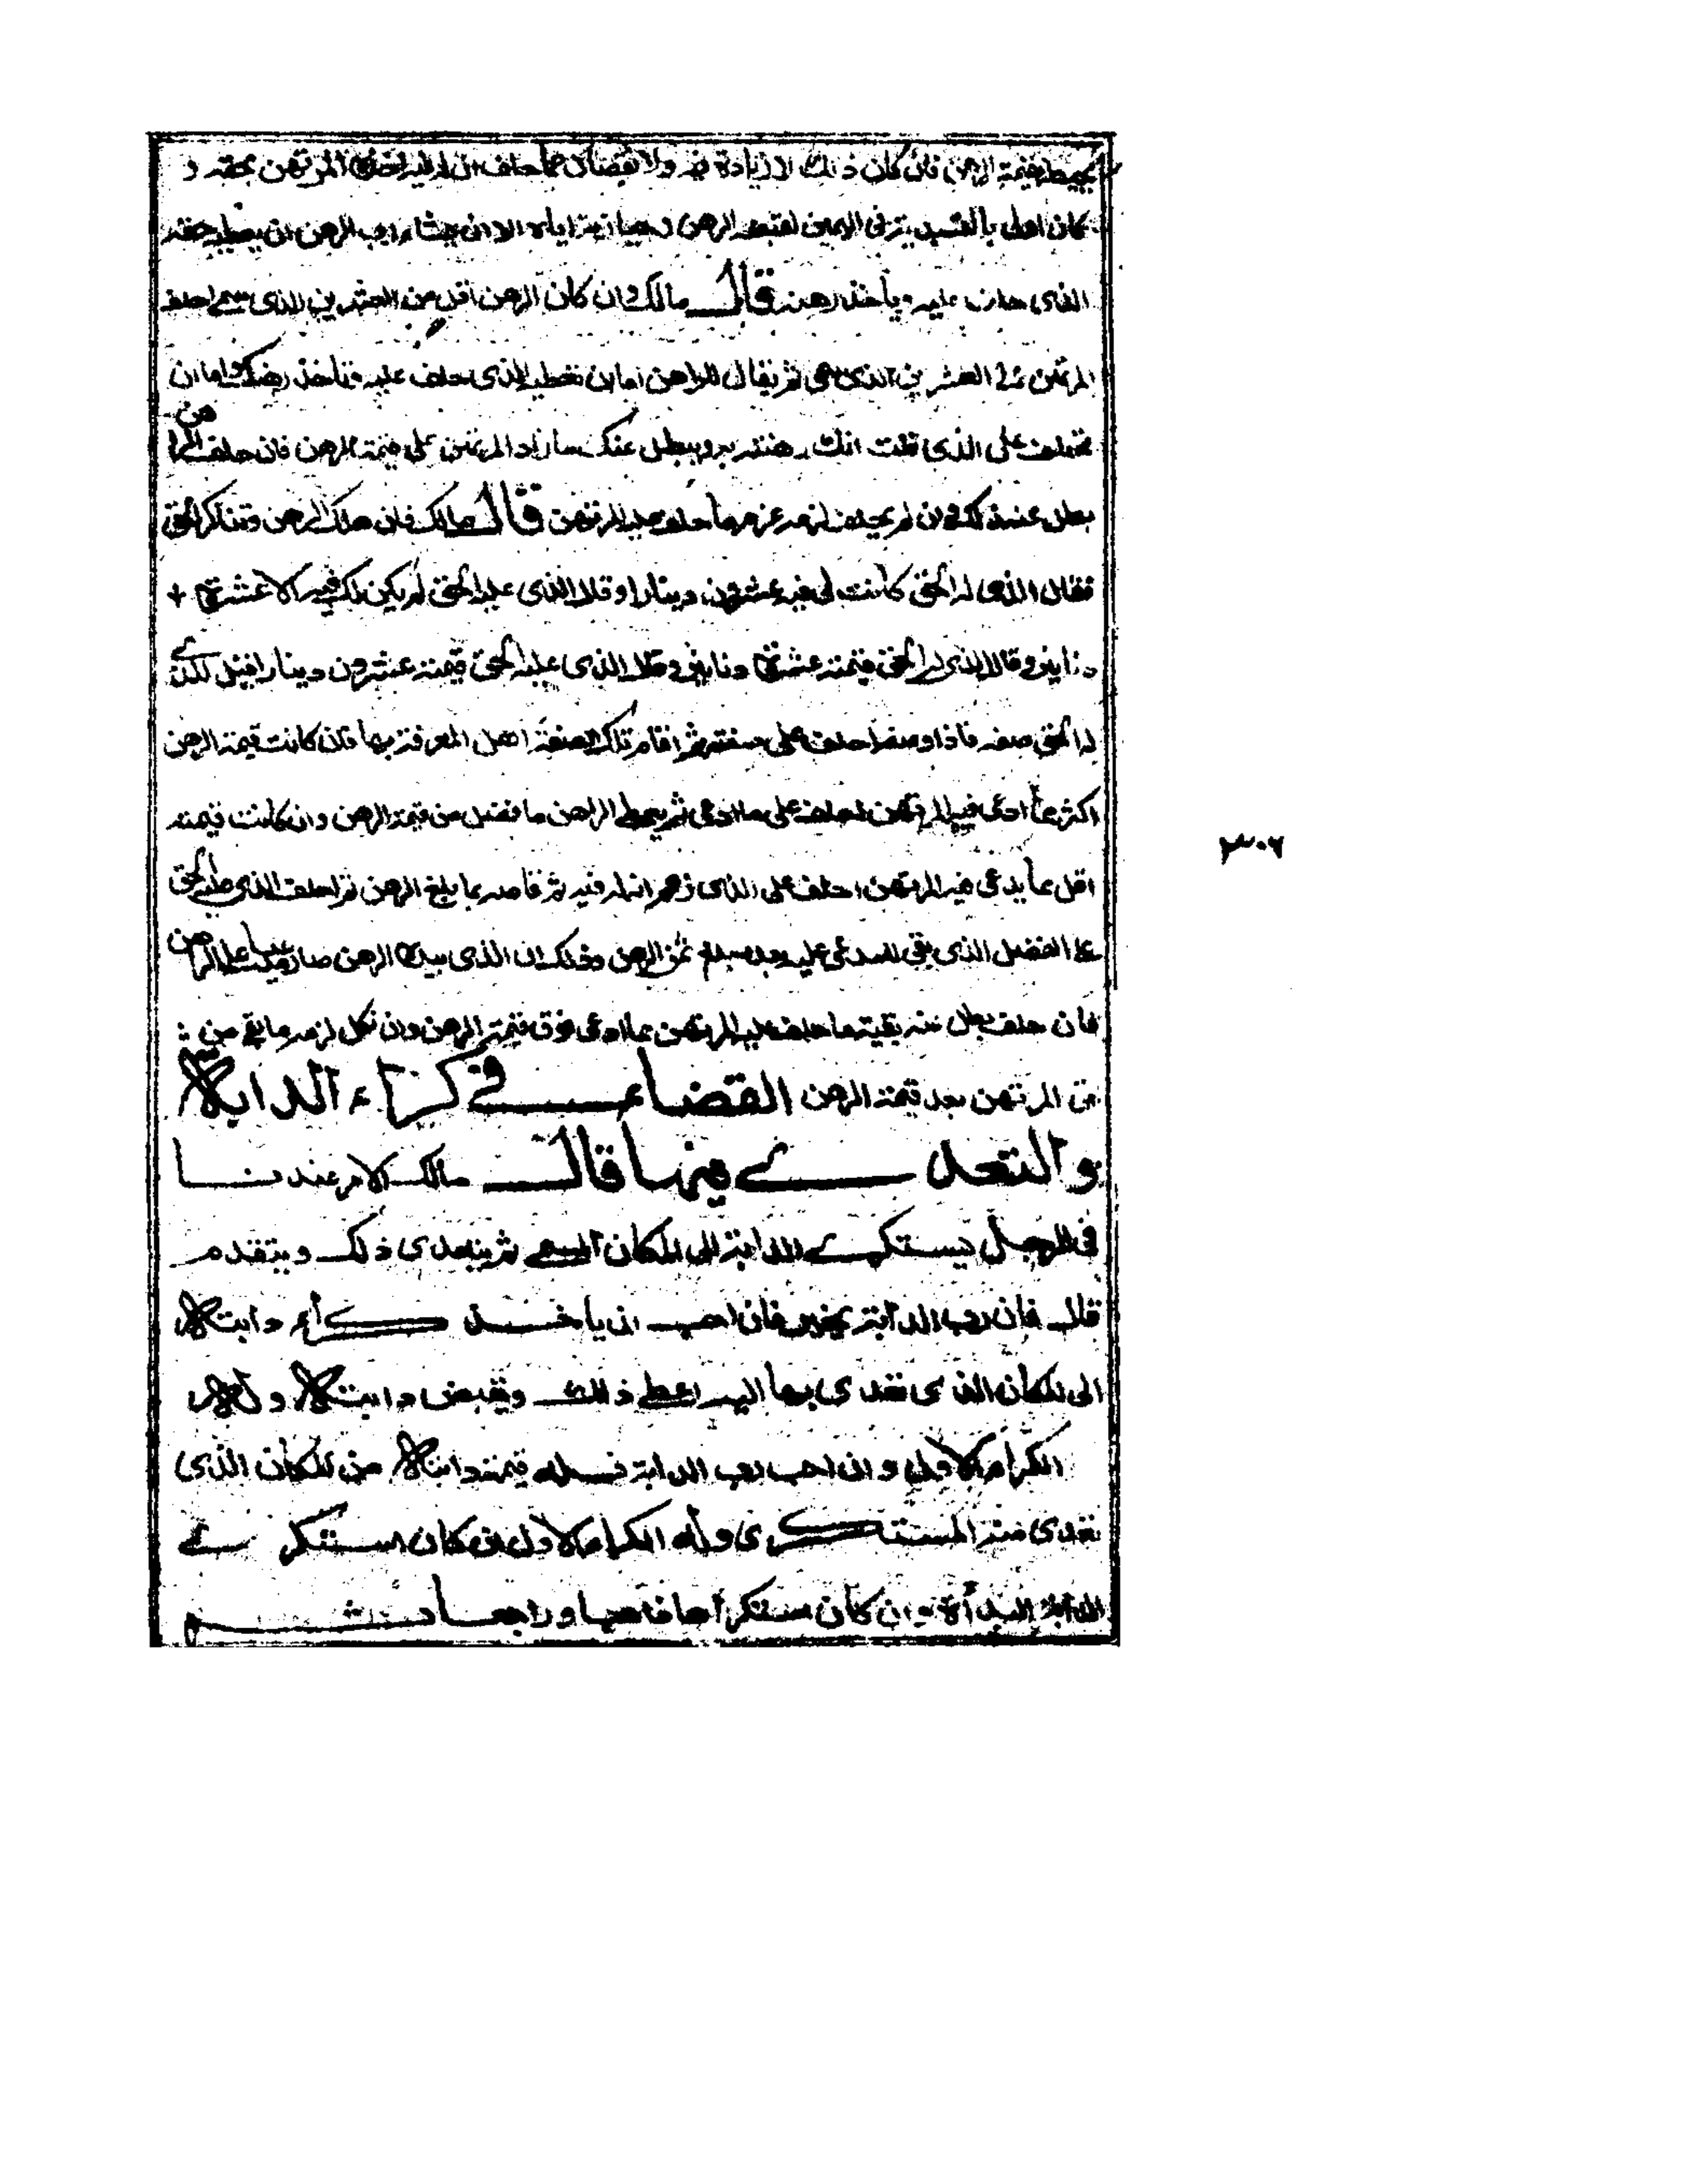 يحيط بقيمة الرهن فان كان ذلك لا زيادة فيه ولا نقصان مما حلف ان له فيه اخذه المرتهن بحقه و
كان اولى بالتبدية في اليمين لقبضه الرهن وحيازته اياه الا ان يشاء رب الرهن ان يعطيه حقه
الذى حلف عليه وياخذ رهنه قال مالك وان كان الرهن اقل من العشرين الذى سمى احلف
المرتهن على العشرين الذى سمى ثم يقال للراهن اما ان تعطيه الذى حلف عليه وتاخذ رهنك واما ان
تحلف على الذى قلت انك رهنته به ويبطل عنك ما زاد المرتهن على قيمة الرهن فان حلف الراهن
بطل عنه ذلك وان لم يحلف لزمه غرم ما حلف عليه المرتهن قال مالك فان هلك الرهن وتناكرا الحق
فقال الذى له الحق كانت لى فيه عشرون دينارا وقال الذى عليه الحق لم يكن لك فيه الا عشرة
دنانير وقال الذى له الحق قيمته عشرة دنانير وقال الذى عليه الحق قيمته عشرون دينارا قيل للذى
له الحق صفه فاذا وصفه احلف على صفته ثم اقام تلك الصفة اهل المعرفة بها فان كانت قيمة الرهن
اكثر مما ادعى فيه المرتهن احلف على ما ادعى ثم يعطى الراهن ما فضل من قيمة الرهن وان كانت قيمته
اقل مما يدعى فيه المرتهن احلف على الذى زعم انه له فيه ثم قاصه بما بلغ الرهن ثم احلف الذى عليه الحق
على الفضل الذى بقى للمدعى عليه بعد مبلغ ثمن الرهن وذلك ان الذى بيده الرهن صار مدعيا على الراهن
فان حلف بطل عنه بقية ما حلف عليه المرتهن مما ادعى فوق قيمة الرهن وان نكل لزمه ما بقى من
حق المرتهن بعد قيمة الرهن القضاء فى كراء الدابة
والتعدى فيها قال مالك الامر عندنا
فى الرجل يستكرى الدابة الى المكان المسمى ثم يتعدى ذلك ويتقدم
قال فان رب الدابة يخير فان احب ان ياخذ كراء دابته
الى المكان الذى تعدى بها اليه اعطى ذلك ويقبض دابته وله
الكراء الاول وان احب رب الدابة فله قيمة دابته من المكان الذى
تعدى منه المستكرى وله الكراء الاول ان كان استكرى
الدابة البدأة وان كان استكراها ذاهبا وراجعا ثم
٣٠٦